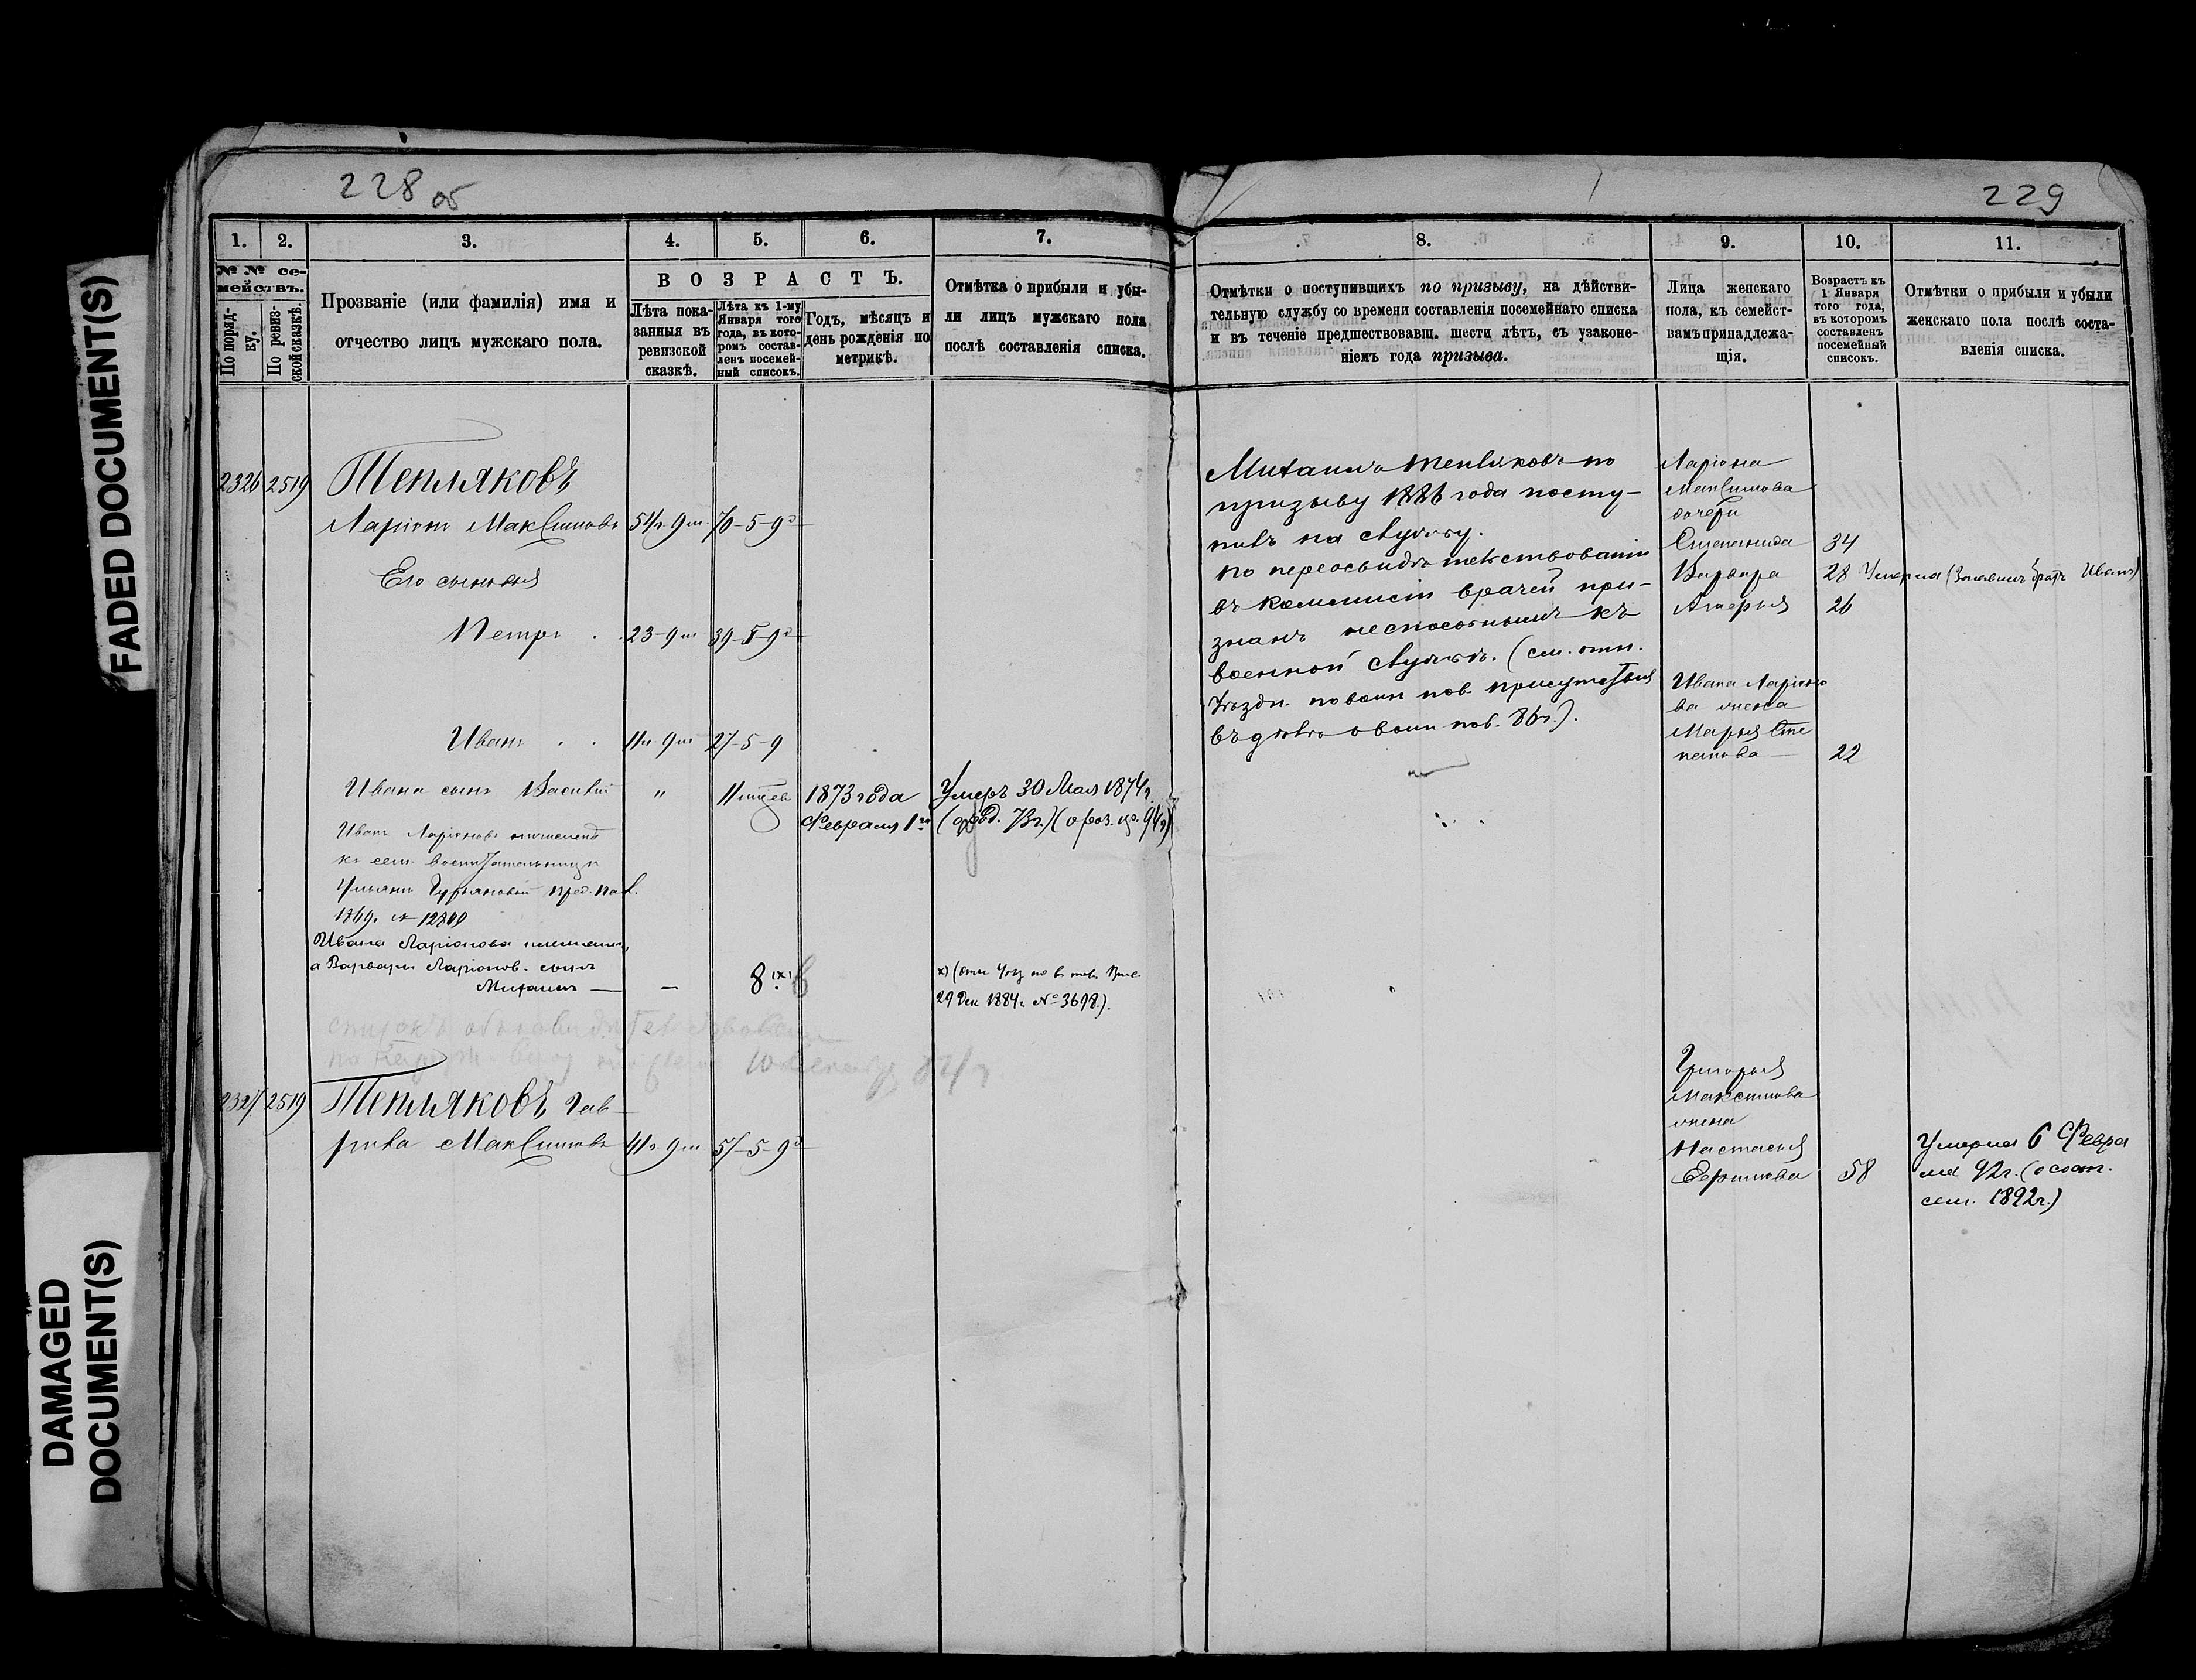 FADED DOCUMENT(S)
DAMAGED
DOCUMENT(S)
228 об
1.
2.
3.
4.
5.
6.
7.
№ № се-
мействъ.
По поряд-
ку.
По ревиз-
ской сказкѣ.
Прозваніе (или фамилія) имя и
отчество лицъ мужскаго пола.
ВОЗРАСТЪ.
Лѣта пока-
занныя въ
ревизской
сказкѣ.
Лѣта къ 1-му
Января того
года, въ кото-
ромъ состав-
ленъ посемей-
ный списокъ.
Годъ, мѣсяцъ и
день рожденія по
метрикѣ.
Отмѣтка о прибыли и убы-
ли лицъ мужскаго пола
послѣ составленія списка.
2326 2519 Тепляковъ
Ларіонъ Максимовъ 54г. 9м. 70-5-9д
Его сыновья
Петръ 23-9м 39-5-9д
Иванъ 11г. 9м 27-5-9
Ивана сынъ Василій " 11 мѣсев 1873 года Умеръ 30 Мая 1874г.
Февраля 1го
Иванъ Ларіоновъ
къ сем.
1869.
Ивана Ларіонова
а Варвары Ларіонов. сынъ
Михаилъ — — 8 (х)
29 Дек 1884г. № 3698).
2327 2519 Тепляковъ Гав-
рила Максимовъ 41г. 9м 57-5-9д
229
8.
9.
10.
11.
Отмѣтки о поступившихъ по призыву, на дѣйстви-
тельную службу со времени составленія посемейнаго списка
и въ теченіе предшествовавш. шести лѣтъ, съ узаконе-
ніемъ года призыва.
Лица женскаго
пола, къ семейст-
вамъ принадлежа-
щія.
Возрастъ къ
1 Января
того года,
въ которомъ
составленъ
посемейный
списокъ.
Отмѣтки о прибыли и убыли
женскаго пола послѣ соста-
вленія списка.
Михаилъ Тепляковъ по
призыву 1886 года посту-
пилъ на службу.
По переосвидѣтельствованіи
въ коммисіи врачей при-
знанъ неспособнымъ къ
военной службѣ. (см. отн.
Уѣздн. по воин пов. присутствія
въ дѣлѣ о воин пов. 86г.).
Ларіона
Максимова
дочери
Степанида 34
Варвара 28 Умерла (Заявилъ братъ Иванъ)
26
Ивана Ларіоно
ва жена
Марья Сте
панова — 22
Григорья
Максимова
жена
Настасья
Ефимова 58
Умерла 6 Февра
ля 92г. (о сост.
сем. 1892г.)